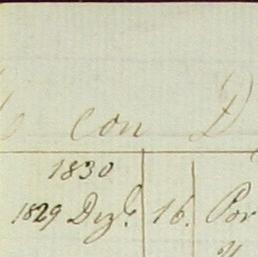 con D
1830
1829 Dizbe. 16. Por